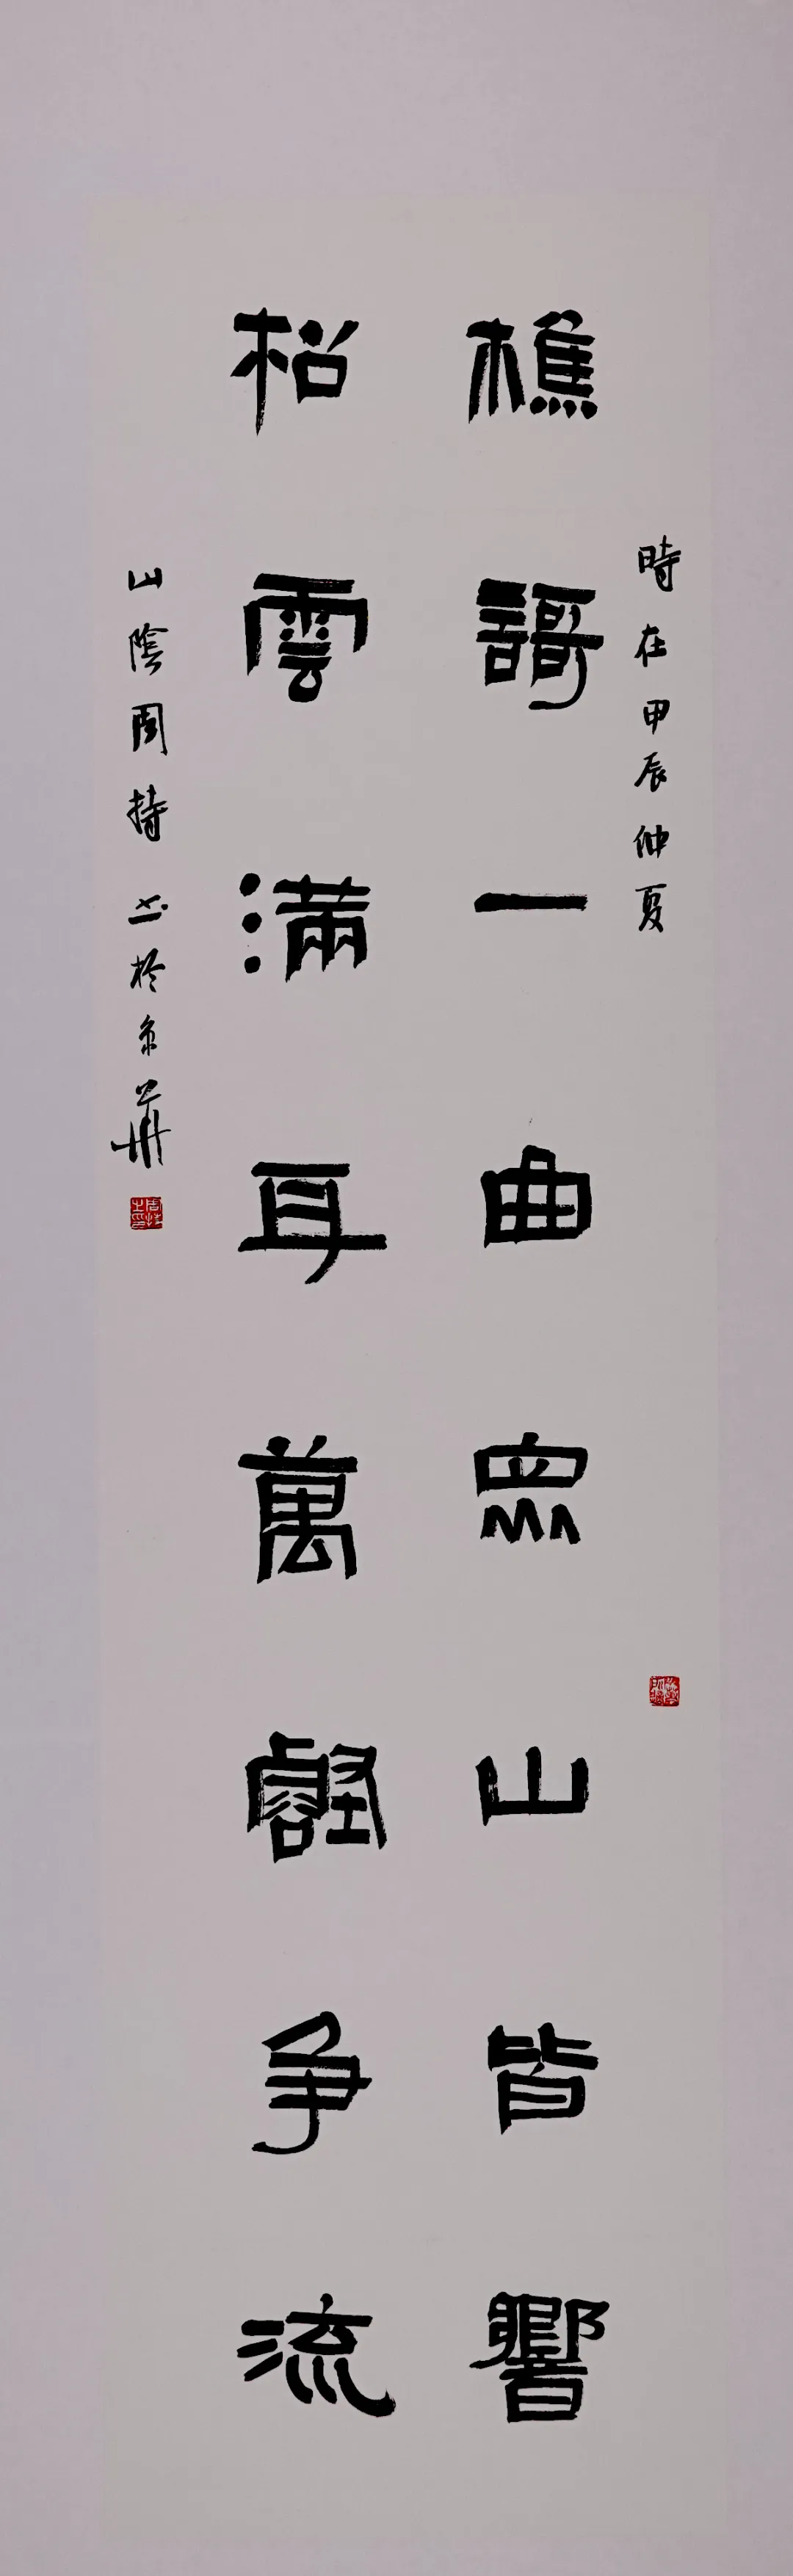 時在甲辰仲夏
樵謌一曲眾山皆響
松雲滿耳萬壑爭流
山陰周持书於京華